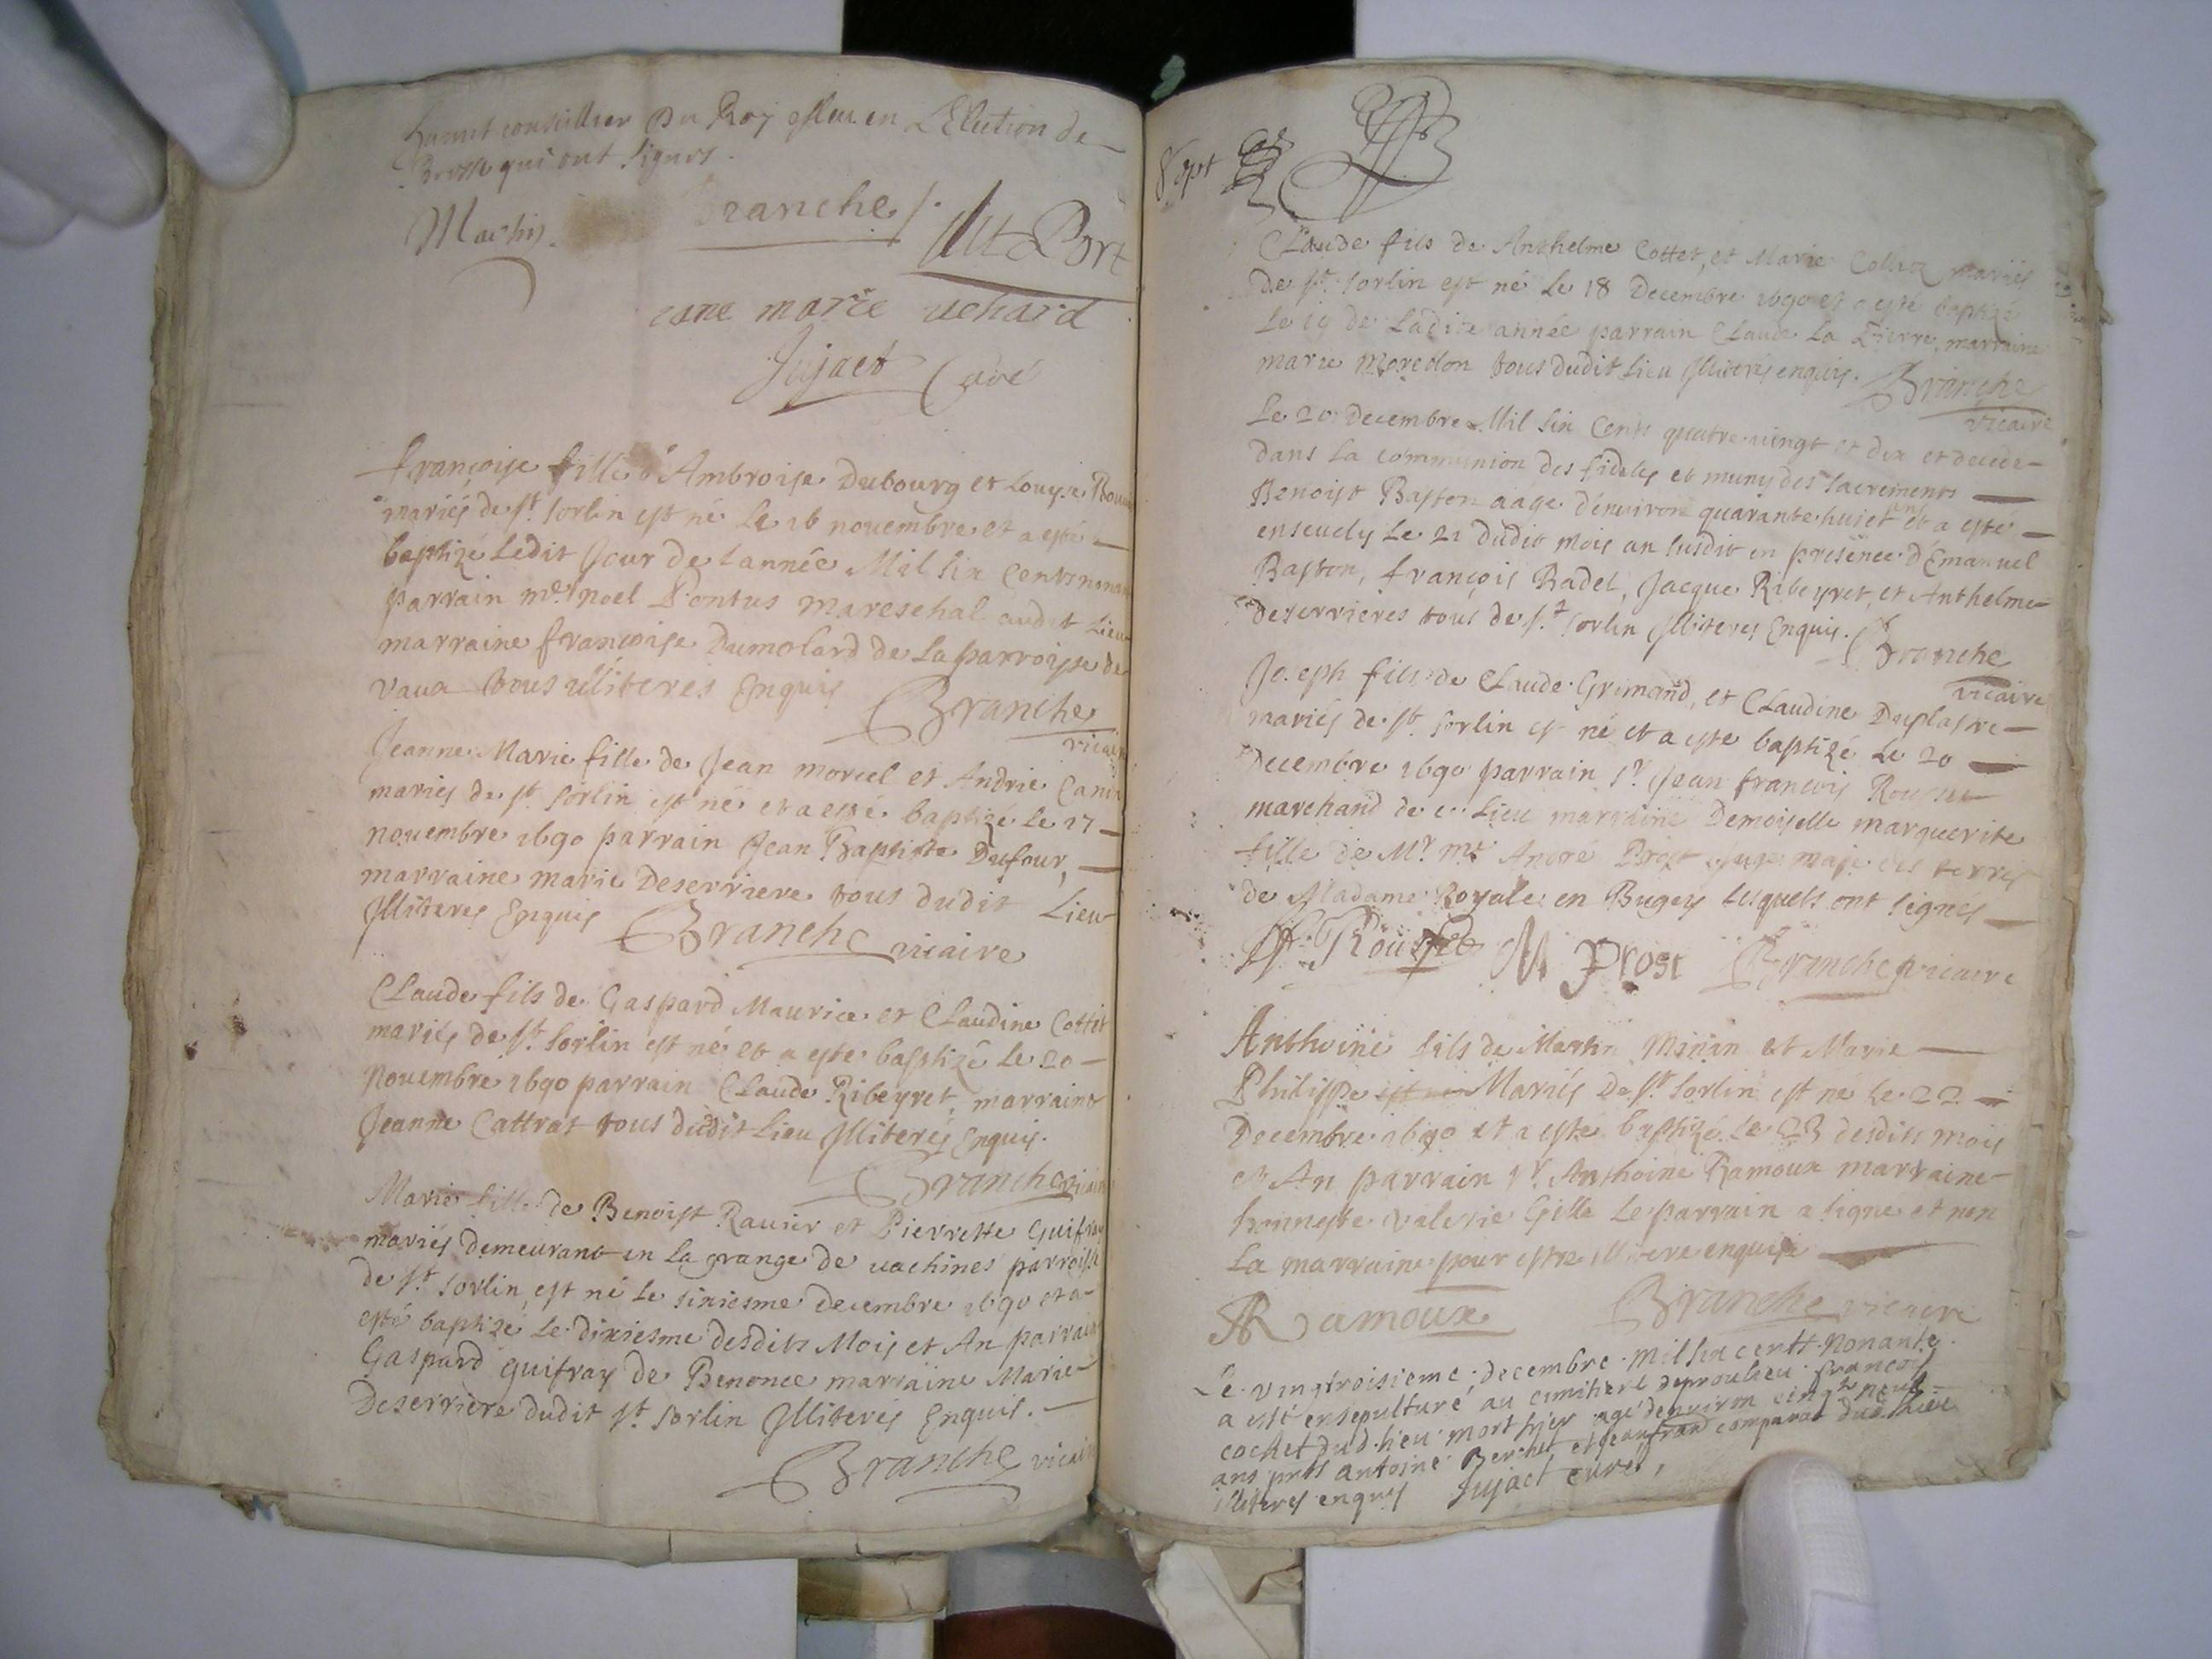 conseiller Du Roy esleu en L'Elution de
qui ont signes.
Branche
Du Port
marie uchard
Jujact Curé
françoise fille d'Ambroise Dubourg et Louyse
mariés de st. Sorlin est né Le 16 novembre et a esté
baptizé Ledit Jour de Lannée Mil Six Cents
parrain me. noel Pontus mareschal audit Lieu
marraine françoise Dumolard de La parroisse de
vaux tous illiteres Enquis Branche
vicaire
Jeanne Marie fille de Jean morcel et Andrie
mariés de st. Sorlin est né et a esté baptizé Le 17
novembre 1690 parrain Jean Baptiste Dufour,
marraine marie Deserriere tous dudit Lieu
Illiteres Enquis Branche vicaire
Claude fils de Gaspard Maurice et Claudine Cottet
mariés de st. Sorlin est né et a esté baptizé Le 20
novembre 1690 parrain Claude Ribeyret, marraine
Jeanne Cattrat tous dudit Lieu Illiterés Enquis.
Branche vicaire
Marie fille de Benoist Ravier et Pierrette
mariés demeurant en La grange de vachines parroisse
de st. Sorlin est né Le sixiesme Decembre 1690 et a
esté baptizé Le dixiesme desdits Mois et An parrain
Gaspard guifray de Benonce marraine Marie
Deserriere dudit st. Sorlin Illiterés Enquis.
Branche vicaire
Claude fils de Anthelme Cottet, et Marie mariés
De st. Sorlin est né Le 18 Decembre 1690 et a esté baptizé
Le 19 de Ladite année parrain Claude La Pierre, marraine
marie Moredon tous dudit Lieu Illiterés enquis. Branche
vicaire
Le 20 Decembre Mil Six Cents quatre vingt et dix et decede
Dans La communion des fideles et muny des Sacrements
Benoist Baston aage d'environ quarante huict ans et a esté
ensevely Le 21 dudit mois an susdit en presence d'Emanuel
Baston, françois Radet, Jacque Ribeyret, et Anthelme
deserrieres tous de st. Sorlin Illiteres Enquis. Branche
vicaire
Joseph fils de Claude Grimand, et Claudine Duplastre
mariés de st. Sorlin est né et a esté baptizé Le 20
Decembre 1690 parrain Sr. Jean francois
marchand de ce Lieu marraine Demoiselle marguerite
fille de Mr. me André Prost des terres
de Madame Royale en Bugey Lesquels ont signés
M Prost Branche vicaire
Anthoine fils de Martin Minin et Marie
Philippe Mariés De st. Sorlin est né Le 22
Decembre 1690 et a esté baptizé Le 23 desdits mois
et An parrain Sr. Anthoine Ramoux marraine
honneste valerie Gille Le parrain a signé et non
La marraine pour estre illitere enquise
Ramoux Branche vicaire
Le vingtroisieme decembre mil six centt nonante
a esté ensepulturé au cimitiere deproulieu francois
cochet dud. lieu mort hier agé denviron cingt neuf
ans pnts antoine Berchet et jeanfrand comparat dud. lieu
illiteres enquis Jujact curé,